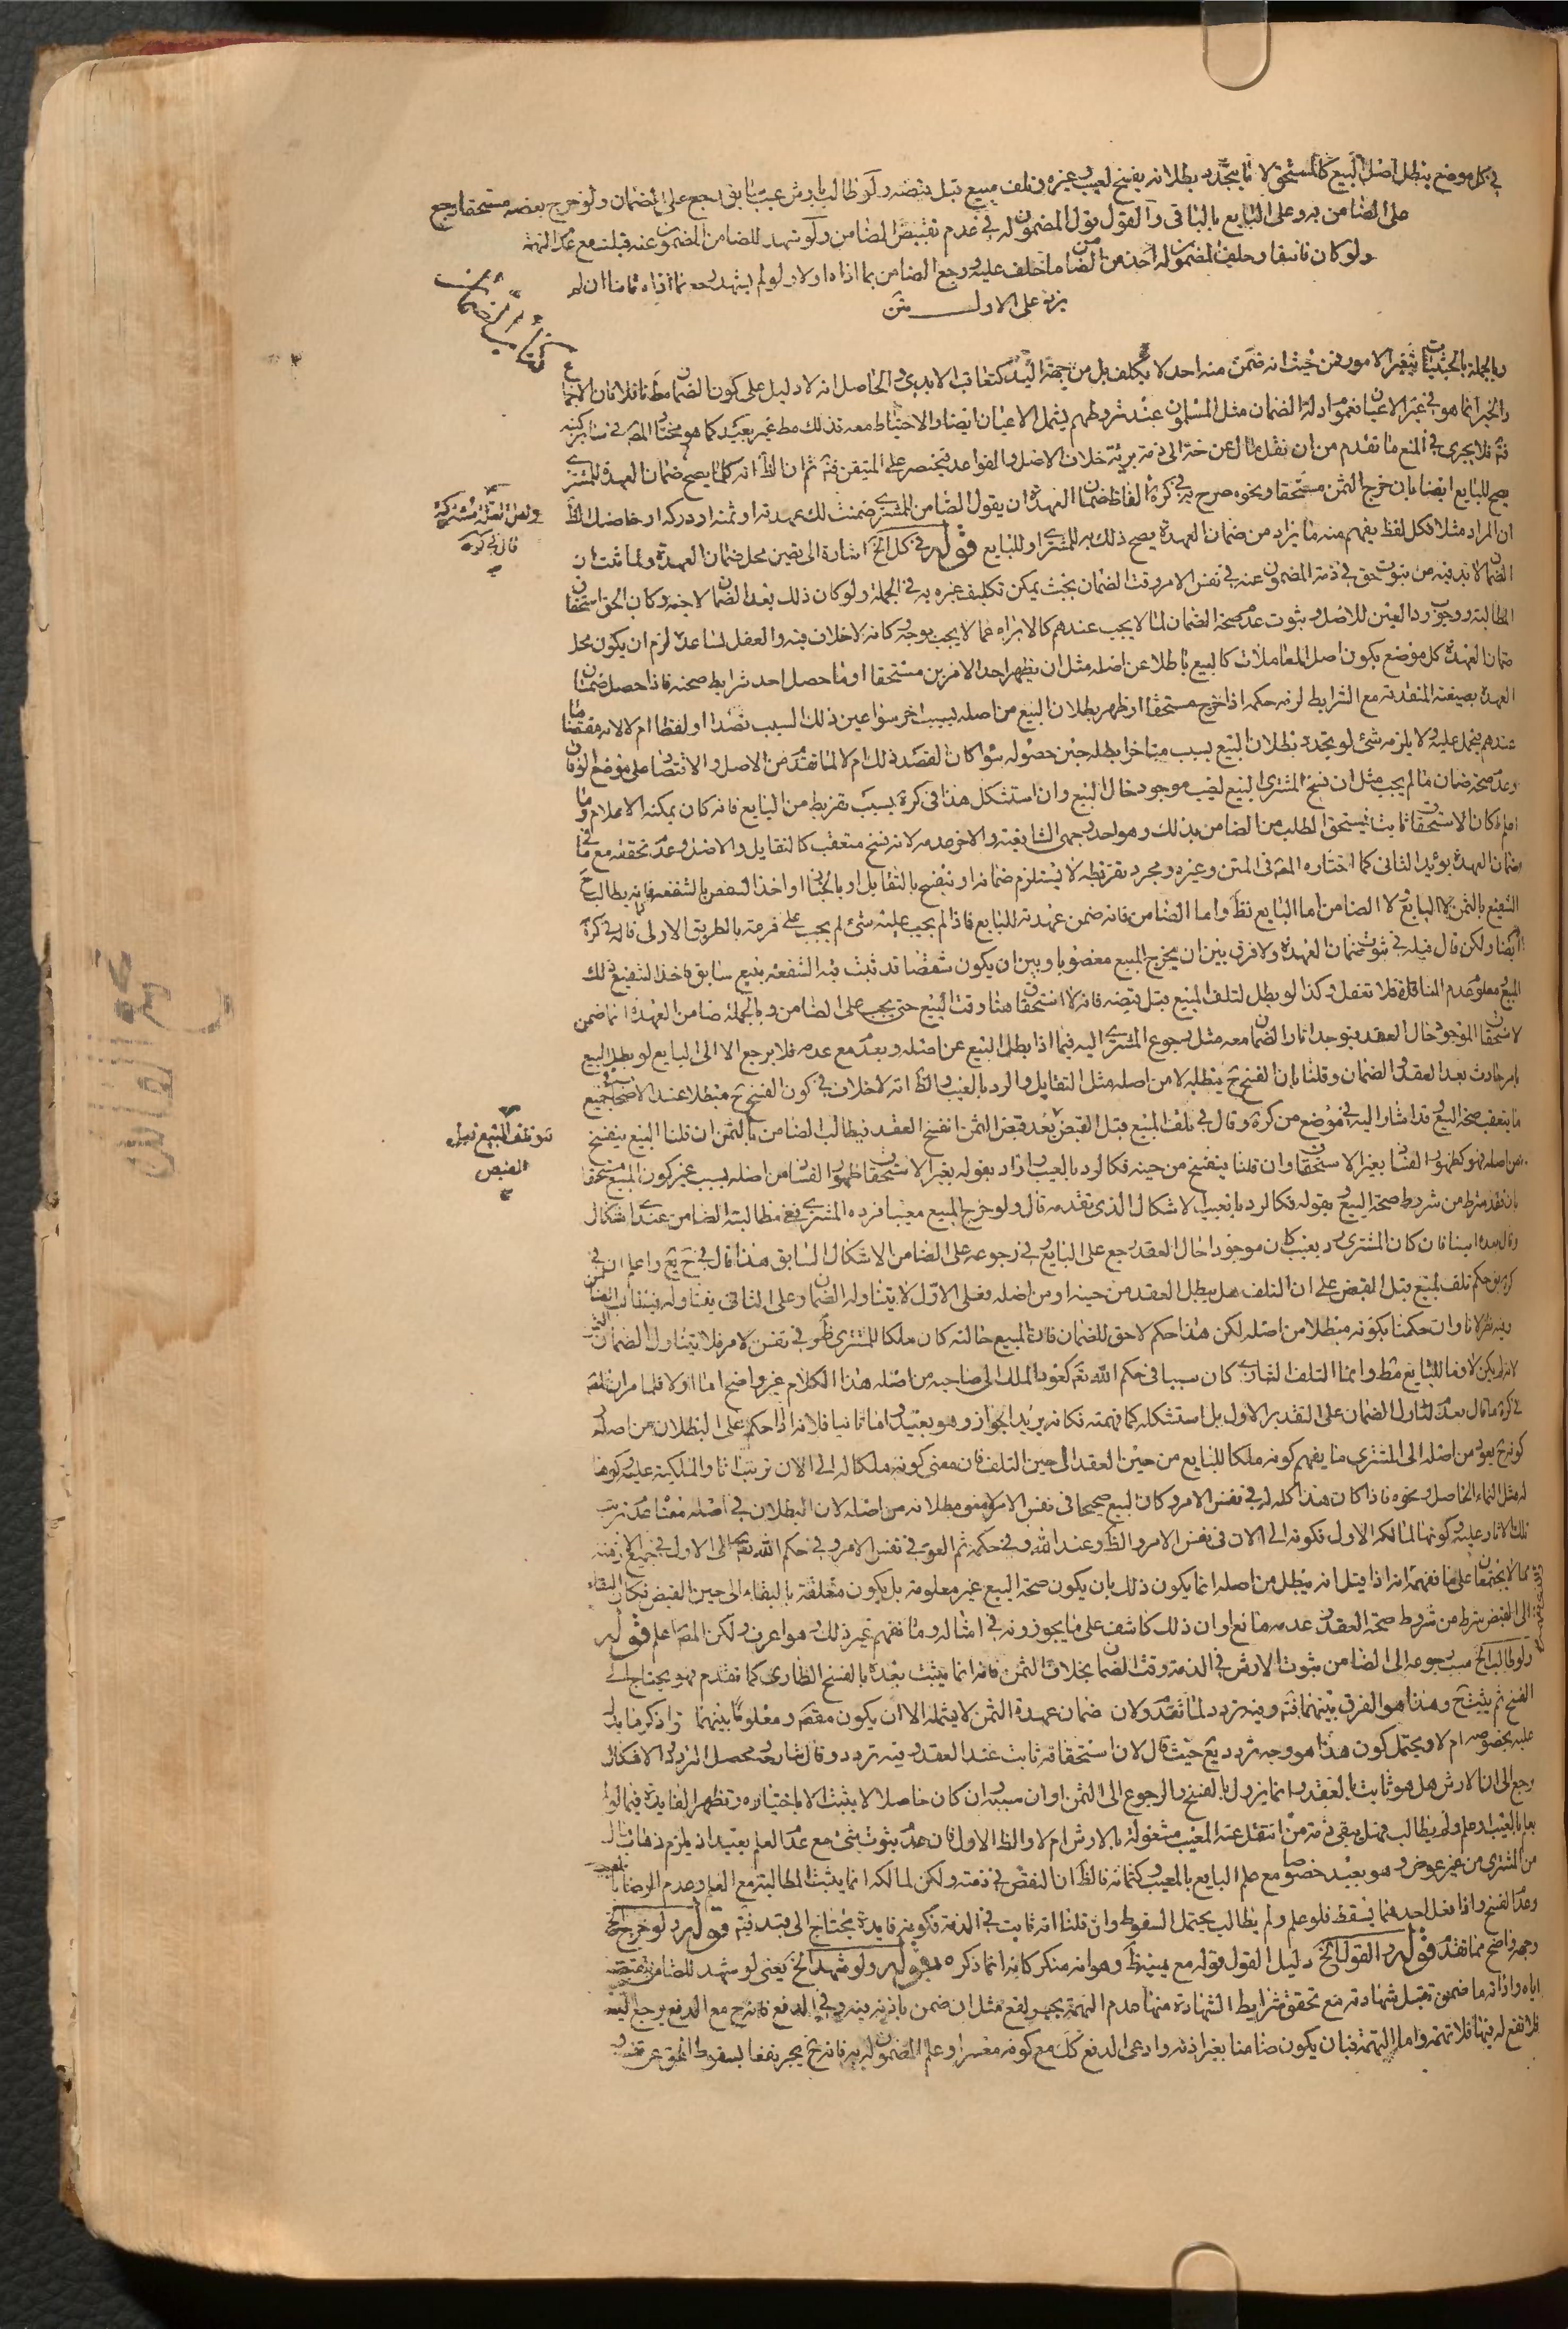 في كل موضع يبطل اصل البيع كالمستحق لا ما يتجدد بطلانه بفسخ لعيب وغيره وتلف مبيع قبل قبضه ولو طالب بارش عيب سابق رجع على الضامن ولو خرج بعضه مستحقا رجع
على الضامن به وعلى البايع بالباقي والقول قول المضمون له في عدم تقبيض الضامن ولو شهد للضامن المضمون عنه قبلت مع عدم التهمة
ولو كان فاسقا وحلف المضمون له اخذ من الضامن ما حلف عليه ورجع الضامن بما اداه اولا ولو لم يشهد رجع بما اداه ثانيا ان لم
يزد على الاول متن
كتاب الضمان
وبالجملة بالحيثيات يتغير الامور فمن حيث انه ضمن منه احد لا يكلف بل من جهة اليد كتعاقب الايدي والحاصل انه لا دليل على كون الضمان مط ناقلا فان الاجماع
والخبر انما هو في غير الاعيان فعموم ادلة الضمان مثل المسلمون عند شروطهم يشمل الاعيان ايضا والاحتياط معه فذلك مط غير بعيد كما هو مختار المصنف في سائر كتبه
فتم فلا يجرى في المنع ما تقدم من ان نقل مال عن ذمة الى ذمة بريئة خلاف الاصل والقواعد فيختصر على المتيقن فتم ثم ان الظ انه كما يصح ضمان العهدة للمشتري
يصح للبايع ايضا بان خرج الثمن مستحقا ونحوه صرح به في كرة الفاظ ضمان العهدة ان يقول الضامن للمشتري ضمنت لك عهدته او ثمنه او دركه او خلاصك الظ
ان المراد مثلا فكل لفظ يفهم منه ما يراد من ضمان العهدة يصح ذلك به للمشتري او للبايع قوله في كل الخ اشارة الى تعيين محل ضمان العهدة ولما ثبت ان
الضمان لا بد فيه من ثبوت حق في ذمة المضمون عنه في نفس الامر وقت الضمان بحيث يمكن تكليف غيره به في الجملة ولو كان ذلك بعد الضمان لا حينه وكان الحق استحقاق
المطالبة ووجوب رد العين للاصل وثبوت عدم صحة الضمان لما لا يجب عندهم كالابراء عما لا يجب بوجه وكانه لا خلاف فيه والعقل يساعده لزم ان يكون محل
ضمان العهدة كل موضع يكون اصل المعاملات كالبيع باطلا عن اصله مثل ان يظهر احد الامرين مستحقا او ما حصل احد شرايط صحته فاذا حصل ضمان
العهدة بصيغته المتقدمة مع الشرايط لزمه حكمه اذا خرج مستحقا او ظهر بطلان البيع من اصله بسبب اخر سواء عين ذلك السبب قصدا او لفظا ام لا لانه مقتضى
عندهم فيحمل عليه ولا يلزمه شئ لو تجدد بطلان البيع بسبب متاخر ابطله حين حصوله سواء كان القصد ذلك ام لا لما تقدم من الاصل والاقتصار على موضع الوفاق
وعدم صحة ضمان ما لم يجب مثل ان فسخ المشتري البيع لعيب موجود حال البيع وان استشكل هذا في كرة بسبب تفريط من البايع فانه كان يمكنه الاعلام
ضمان العهدة يؤيد الثاني كما اختاره المصنف في المتن وغيره ومجرد تفريطه لا يستلزم ضمانه او ينفسخ بالتقايل او بالخيار او اخذ الشقص بالشفعة فانه يطالب ح
الشفيع بالثمن لا البايع لا الضامن اما البايع نظ واما الضامن فانه ضمن عهدته للبايع فاذا لم يجب عليه شئ لم يجب على فرعه بالطريق الاولى قاله في كرة
ايضا ولكن قال قبله في ثبوت ضمان العهدة ولا فرق بين ان يخرج المبيع مغصوبا وبين ان يكون شقصا قد ثبت فيه الشفعة ببيع سابق فاخذ الشفيع ذلك
المبيع معلوم عدم المنافاة فلا تغفل وكذا لو بطل لتلف المبيع قبل قبضه فانه لا استحقاق هنا وقت البيع حتى يجب على الضامن وبالجملة ضامن العهدة انما ضمن
لاستحقاق الموجود حال العقد فيوجد اثار الضمان معه مثل رجوع المشتري اليه فيما اذا بطل البيع عن اصله وبعدم مع عدمه فلا يرجع الا الى البايع لو بطل البيع
بامر حادث بعد العقد والضمان وقلنا بان الفسخ ح يبطله لا من اصله مثل التقايل والرد بالعيب والظ انه لا خلاف في كون الفسخ ح مبطلا عند الاصحاب جميع
ما يتعقب صحة البيع وقد اشار اليه في موضع من كرة وقال في تلف المبيع قبل القبض بعد قبض الثمن انفسخ العقد فيطالب الضامن بالثمن ان قلنا البيع ينفسخ
من اصله فهو كظهور الفساد بغير الاستحقاق وان قلنا ينفسخ من حينه فكالرد بالعيب واراد بقوله بغير الاستحقاق ظهور الفساد من اصله بسبب غير كون المبيع مستحقا
بان فقد شرط من شروط صحة البيع وبقوله فكالرد بالعيب الاشكال الذي تقدمه قال ولو خرج المبيع معيبا فرده المشتري ففي مطالبة الضامن عندي اشكال
وقال بعده ايضا فان كان المشتري رد بعيب كان موجودا حال العقد رجع على البايع وفي رجوعه على الضامن الاشكال السابق هذا قال في ح يع واعلم ان في
كرة بنى حكم تلف المبيع قبل القبض على ان التلف هل يبطل العقد من حينه او من اصله فعلى الاول لا يتناوله الضمان وعلى الثاني يتناوله فيطالب الضامن
وفيه نظر لانا وان حكمنا بكونه مبطلا من اصله لكن هذا حكم لاحق للضمان فان المبيع حالته كان ملكا للمشتري ظاهرا وفي نفس الامر فلا يتناول الضمان الثمن
لانه لم يكن لازما للبايع مط وانما التلف الطاري كان سببا في حكم الله تع كعود الملك الى صاحبه من اصله هذا الكلام غير واضح اما اولا فلما مر ان المصنف
في كرة ما قال بعدم تناول الضمان على التقدير الاول بل استشكله كما فهمته فكانه يريد الجواز وهو بعيد واما ثانيا فلانه اذا حكم على البطلان من اصله و
كونه ح يعود من اصله الى المشتري ما يفهم كونه ملكا للبايع من حين العقد الى حين التلف فان معنى كونه ملكا له الى الان ترتب اثار الملكية عليه وكونها
له مثل النماء الحاصل ونحوه فاذا كان هذا كله له في نفس الامر وكان البيع صحيحا في نفس الامر فهو مطلانه من اصله لان البطلان في اصله معناه عدم ترتب
تلك الاثار عليه وكونها لمالكه الاول فكونه الى الان في نفس الامر والظ وعند الله وفي حكمه ثم العود في نفس الامر وفي حكم الله تعالى الى الاول في جميع الازمنة
مما لا يجتمعان على ما نفهمه انه اذا قيل انه يبطل من اصله انما يكون ذلك بان يكون صحة البيع غير معلومة بل يكون متعلقة بالبقاء الى حين القبض فكان البقاء
الى القبض شرط من شروط صحة العقد وعدمه مانع او ان ذلك كاشف على ما يجوزونه في امثاله وما نفهم غير ذلك وهو اعرف ولكن المصنف اعلم قوله
ولو طالب الخ سبب رجوعه الى الضامن ثبوت الارش في الذمة وقت الضمان بخلاف الثمن فانه انما يثبت بعده بالفسخ الطاري كما تقدم فهو يحتاج الى
الفسخ ثم يثبت ح وهذا هو الفرق بينهما فتم وفيه تردد لما تقدم ولان ضمان عهدة الثمن لا يشمله الا ان يكون مقصودا ومعلوما بينهما واذكر ما يدل
عليه بخصوصه ام لا ويحتمل كون هذا هو وجه تردد يع حيث قال لان استحقاقه ثابت عند العقد وفيه تردد وقال شارحه محصل التردد والاشكال
رجع الى ان الارش هل هو ثابت بالعقد وانما يزول بالفسخ والرجوع الى الثمن او ان سببه وان كان حاصلا لا يثبت الا باختياره وتظهر الفايدة فيما لو لم
يعلم بالعيب او علم ولم يطالب فهل يبقى ذمة من انتقل عنه المعيب مشغولة بالارش ام لا والظ الاول فان عدم ثبوت شئ مع عدم العلم بعيد اذ يلزم ذهاب مال
من المشتري من غير عوض وهو بعيد خصوصا مع علم البايع بالمعيب وكتمانه فالظ ان النقص في ذمته ولكن لمالكه انما يثبت المطالبة مع العلم وعدم الرضا بالعيب
وعدم الفسخ واذا فعل احدهما يسقط فلو علم ولم يطالب يحتمل السقوط وان قلنا انه ثابت في الذمة فكونه فايدة يحتاج الى قيد فتم قوله ولو خرج الخ
وجهه واضح مما تقدم قوله والقول الخ دليل القول قوله مع يمينه ظ وهو انه منكر كانه انما ذكره لقوله ولو شهد الخ يعنى لو شهد للضامن بتقبيضه
اياه واداءه ما ضمن تقبل شهادته مع تحقق شرايط الشهادة منها عدم التهمة بجر نفع مثل ان ضمن باذنه فيه وفي الدفع فانه ح مع الدفع يرجع اليه
فلا نفع له فيها فلا تهمة واما التهمة فبان يكون ضامنا بغير اذنه وادعى الدفع كك مع كونه معسرا وعلم المضمون له به فانه ح يجر نفعا بسقوط الحق عن ذمته و